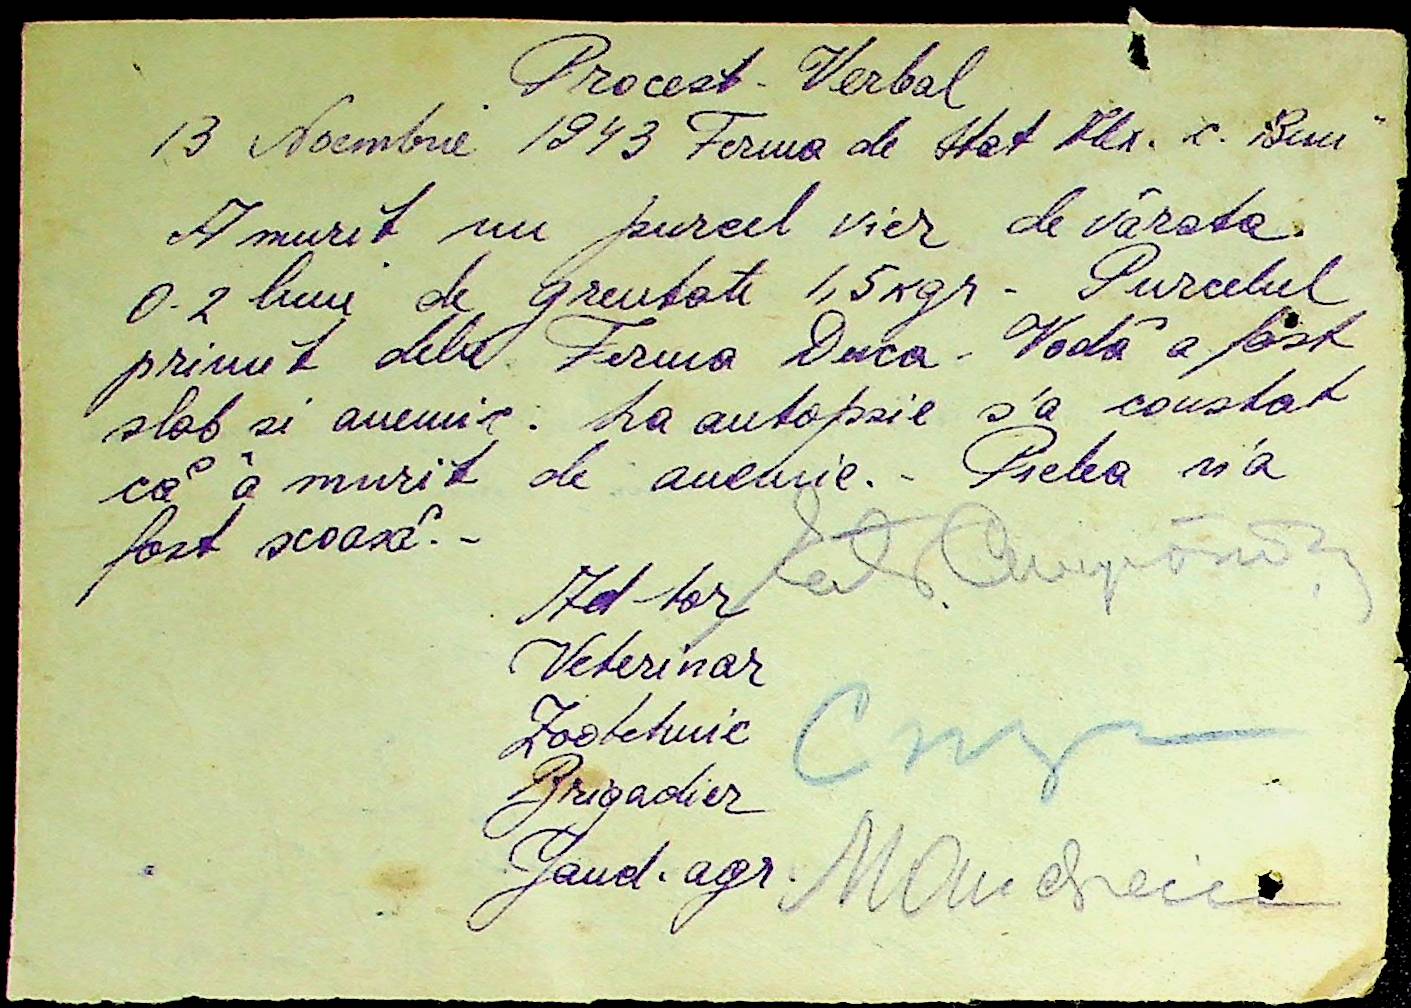 Procest-Verbal
13 Noembrie 1943 Ferma de Stat Alex. c. Buni"
A murit un purcel vier de vârsta
0-2 luni de greutate 1,5 kgr - Purcelul
primit dela Ferma Duca-Vodă a fost
slab si anemic. La autopsie s'a constat
că a murit de anemie. - Pielea n'a
fost scoasă. -
Ad-tor
Veterinar
Zootehnic
Brigadier
Jand. agr.